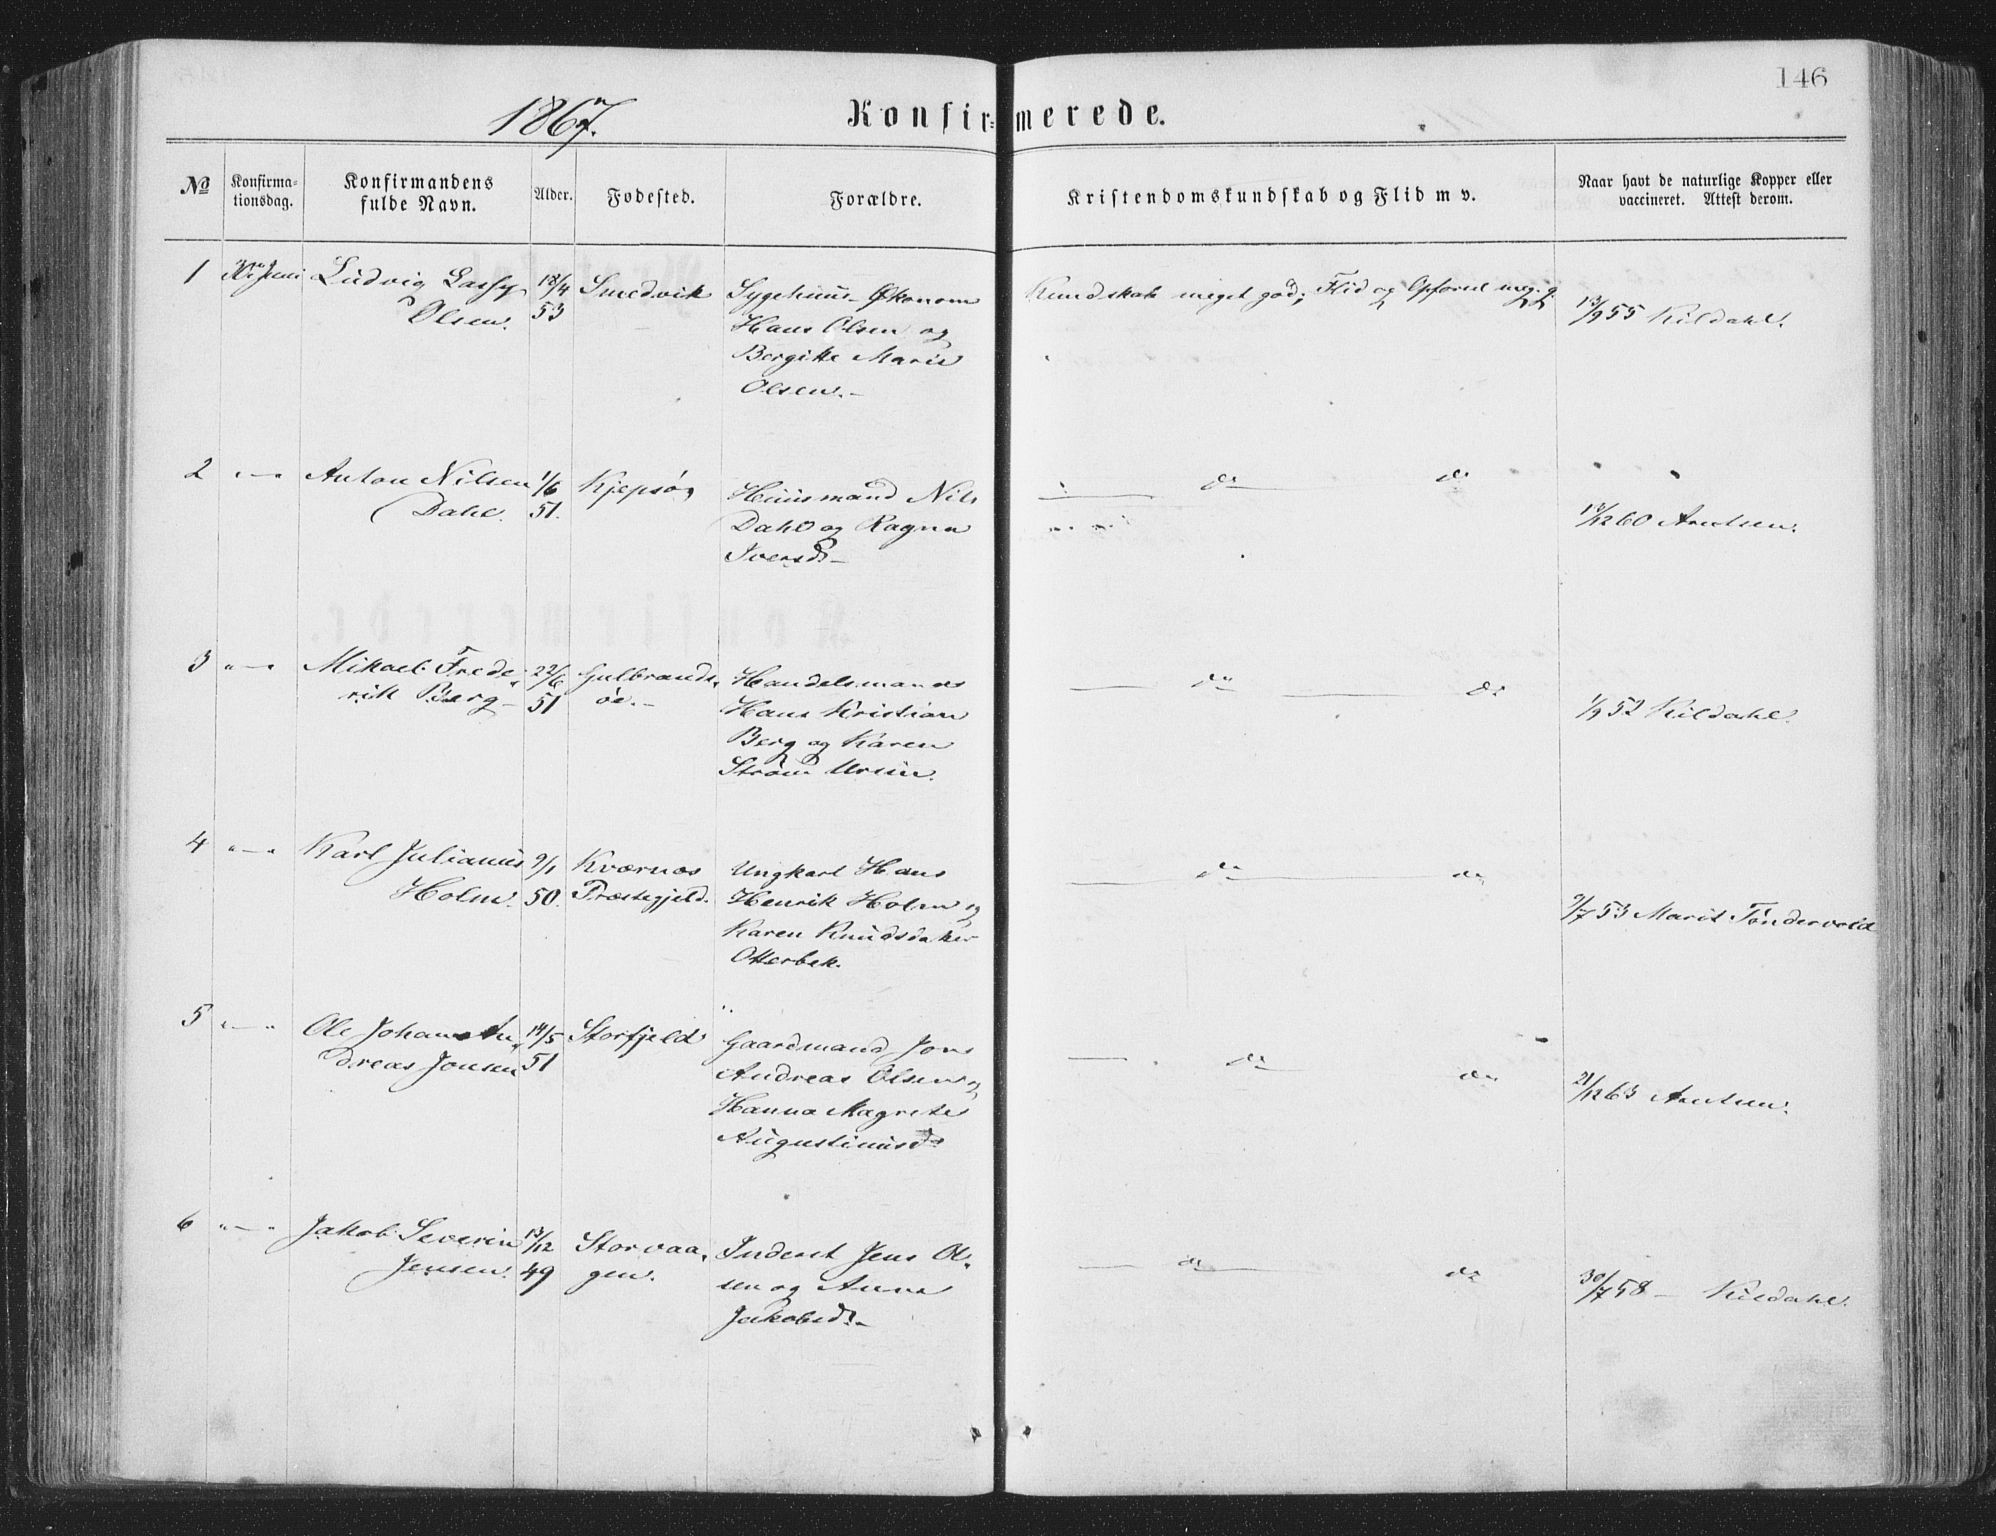 146
1867. Konfirmerede.
№ Konfirma-tionsdag. Konfirmandens fulde Navn. Alder. Fødested. Forældre. Kristendomskundskab og Flid m v. Naar havt de naturlige Kopper eller vaccineret. Attest derom.
1 Juni Ludvig Olsen. 18/4 53 Smedvik
Sygehuus-Økonom
Hans Olsen og
Bergitte Marie
Olsen.-
Kundskab meget god; Flid og Opførsel meg. g.
13/9 55 Kildahl.
2 "—" Anton Nilsen
Dahl. 1/6 51. Kjepsø
Huusmand Nils
Dahl og Ragna
Iversd.-
do do
12/12 60 Arntsen.
3 "—" Mikael Frede-
rik Berg- 22/6 51 Gulbrands-
øe.-
Handelsmand
Hans Kristian
Berg og Karen
Strøm Ursin.
do do
1/9 52 Kildahl.
4 "—" Karl Julianus
Holm. 9/1 50. Kværnæs
Præstegjeld.
Ungkarl Hans
Henrik Holm og
Karen Knudsdatter
Otterbek.
do do
9/7 53 Marit Tøndervold
5 "—" Ole Johan An-
dreas Jonsen 14/5 51 Storfjeld
Gaardmand Jon
Andreas Olsen og
Hanna Magrete
Augustinusd.
do do
21/12 63 Arntsen.
6 "—" Jakob Severin
Jensen. 13/12 49 Storvaa-
gen.
Inderst Jens Ol-
sen og Anna
Jakobsd.-
do do
30/7 58 — Kildahl.